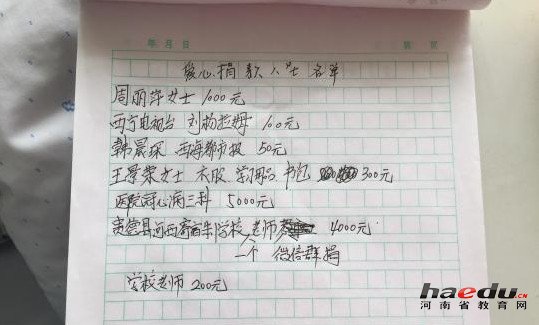 年 月 日
第 页
爱心捐款人士名单
周丽萍女士 1000元
西宁电视台 刘杨拉姆 100元
韩晨琛 西海都市报 50元
王景荣女士 衣服 学习用品 书包 300元
医院冠心病三科 5000元
贵德县河西寄宿制学校老师 4000元
一个 微信群捐
学校老师 200元
haedu.cn
河南省教育网